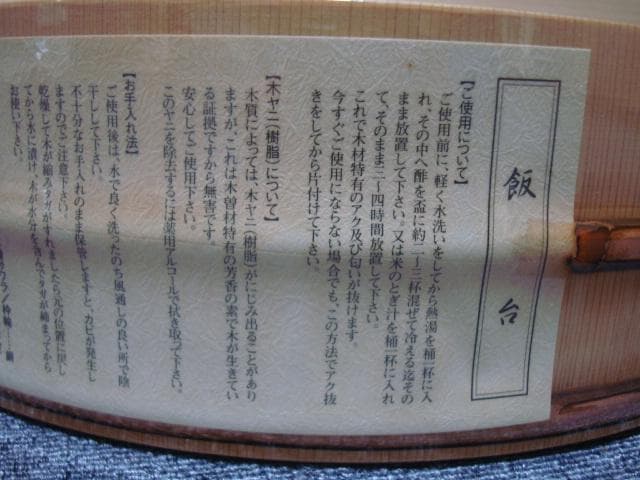 飯台
【ご使用について】
ご使用前に、軽く水洗いをしてから熱湯を桶一杯に入
れ、その中へ酢を盃に約二〜三杯混ぜて冷える迄その
まま放置して下さい。又は米のとぎ汁を桶一杯に入れ
て、そのまま三〜四時間放置して下さい。
これで木材特有のアク及び匂いが抜けます。
今すぐご使用にならない場合でも、この方法でアク抜
きをしてから片付けて下さい。
【木ヤニ(樹脂)について】
木質によっては、木ヤニ(樹脂)がにじみ出ることがあり
ますが、これは木曽材特有の芳香の素で木が生きてい
る証拠ですから無害です。
安心してご使用下さい。
このヤニを除去するには薬用アルコールで拭き取って下さい。
【お手入れ法】
ご使用後は、水で良く洗ったのち風通しの良い所で陰
干しして下さい。
不十分なお手入れのまま保管しますと、カビが発生し
ますのでご注意下さい。
乾燥して木が縮みタガがずれましたら元の位置に戻し
てから水に漬け、木が水分を含んでタガが締まってから
お使い下さい。